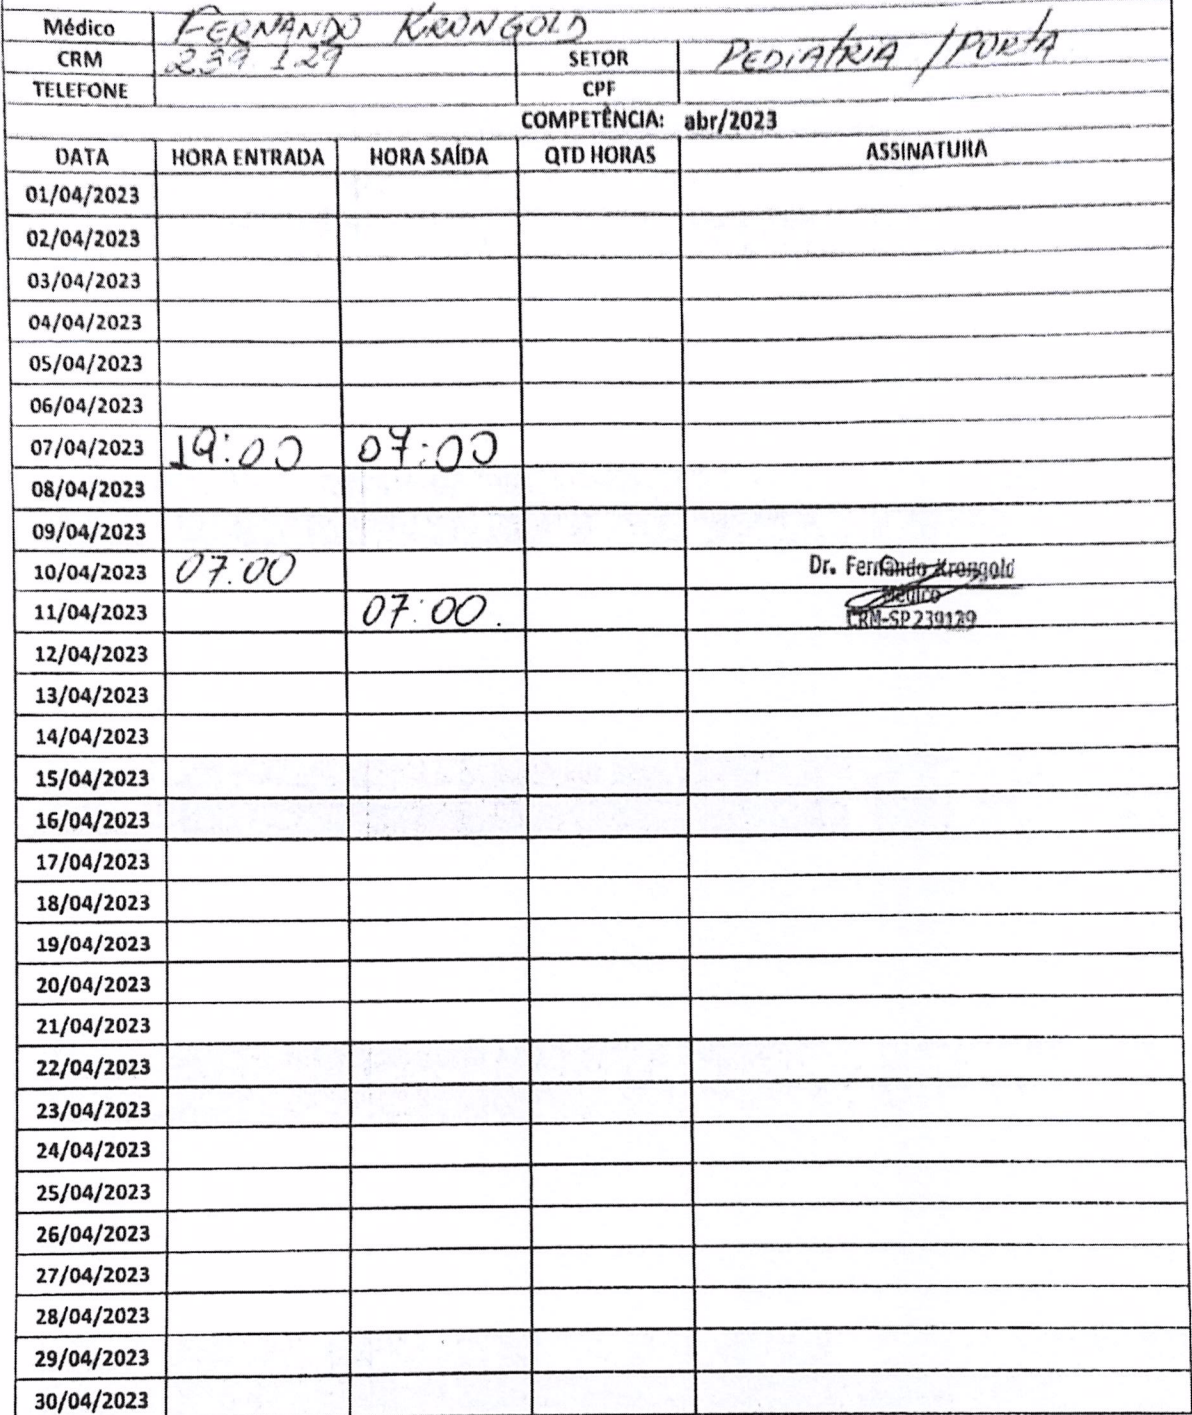 Médico FERNANDO KRONGOLD
CRM 239.129 SETOR PEDIATRIA / PORTA
TELEFONE CPF
COMPETÊNCIA: abr/2023
DATA HORA ENTRADA HORA SAÍDA QTD HORAS ASSINATURA
01/04/2023
02/04/2023
03/04/2023
04/04/2023
05/04/2023
06/04/2023
07/04/2023 19:00 07:00
08/04/2023
09/04/2023
10/04/2023 07:00 Dr. Fernando Krongold
Médico
11/04/2023 07:00. CRM-SP 239129
12/04/2023
13/04/2023
14/04/2023
15/04/2023
16/04/2023
17/04/2023
18/04/2023
19/04/2023
20/04/2023
21/04/2023
22/04/2023
23/04/2023
24/04/2023
25/04/2023
26/04/2023
27/04/2023
28/04/2023
29/04/2023
30/04/2023